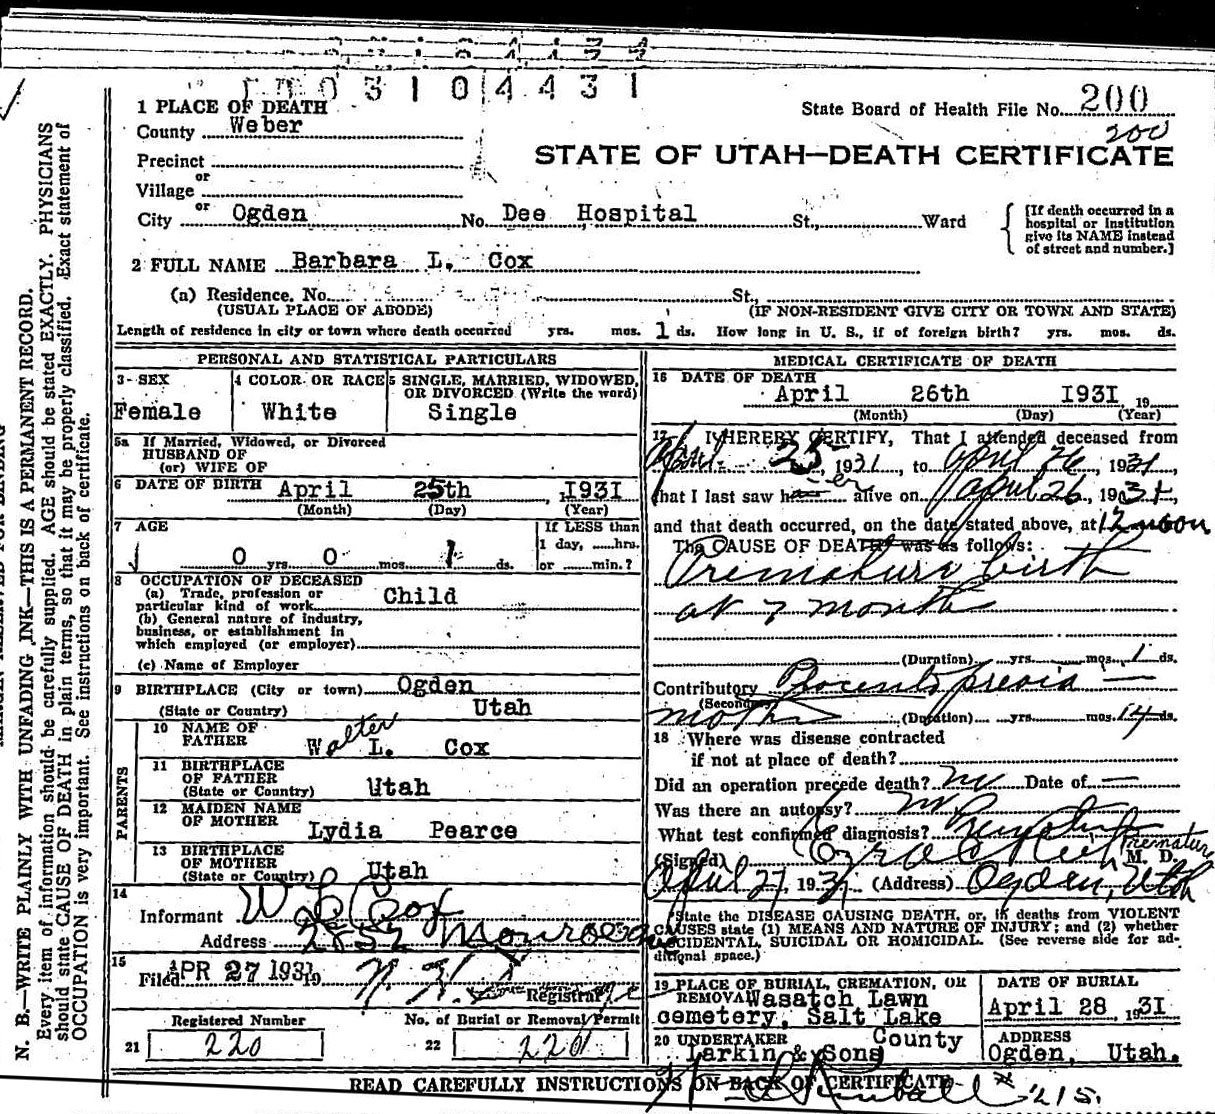 0 3 1 0 4 4 3 1
State Board of Health File No. 200
200
1 PLACE OF DEATH
County Weber
STATE OF UTAH—DEATH CERTIFICATE
Precinct
or
Village
or
City Ogden No. Dee Hospital St., Ward
[If death occurred in a hospital or institution give its NAME instead of street and number.]
2 FULL NAME Barbara L. Cox
(a) Residence. No. St.,
(USUAL PLACE OF ABODE) (IF NON-RESIDENT GIVE CITY OR TOWN AND STATE)
Length of residence in city or town where death occurred yrs. mos. 1 ds. How long in U. S., if of foreign birth? yrs. mos. ds.
PERSONAL AND STATISTICAL PARTICULARS
3 - SEX
Female
4 COLOR OR RACE
White
5 SINGLE, MARRIED, WIDOWED,
OR DIVORCED (Write the word)
Single
5a If Married, Widowed, or Divorced
HUSBAND OF
(or) WIFE OF
6 DATE OF BIRTH April 25th, 1931
(Month) (Day) (Year)
7 AGE
0 yrs. 0 mos. 1 ds.
If LESS than
1 day, hrs.
or min.?
8 OCCUPATION OF DECEASED
(a) Trade, profession or
particular kind of work Child
(b) General nature of industry,
business, or establishment in
which employed (or employer)
(c) Name of Employer
9 BIRTHPLACE (City or town) Ogden
(State or Country) Utah
PARENTS
10 NAME OF
FATHER Walter L. Cox
11 BIRTHPLACE
OF FATHER
(State or Country) Utah
12 MAIDEN NAME
OF MOTHER
Lydia Pearce
13 BIRTHPLACE
OF MOTHER
(State or Country) Utah
14
Informant W L Cox
Address 2852 Monroe
15
Filed APR 27 1931 19
Registrar
Registered Number
21 220
No. of Burial or Removal Permit
22 220
MEDICAL CERTIFICATE OF DEATH
16 DATE OF DEATH
April 26th 1931 19
(Month) (Day) (Year)
17 I HEREBY CERTIFY, That I attended deceased from
April 25, 1931, to April 26, 1931,
that I last saw her alive on April 26, 1931,
and that death occurred, on the date stated above, at 12 noon
The CAUSE OF DEATH was as follows:
Premature birth
at 7 months
(Duration) yrs. mos. 1 ds.
Contributory Placenta previa —
(Secondary)
mother (Duration) yrs. mos. 14 ds.
18 Where was disease contracted
if not at place of death?
Did an operation precede death? no Date of —
Was there an autopsy? no
What test confirmed diagnosis?
Premature
(Signed) M. D.
April 27, 1931 (Address) Ogden, Utah
State the DISEASE CAUSING DEATH, or, in deaths from VIOLENT
CAUSES state (1) MEANS AND NATURE OF INJURY; and (2) whether
ACCIDENTAL, SUICIDAL OR HOMICIDAL. (See reverse side for ad-
ditional space.)
19 PLACE OF BURIAL, CREMATION, OR
REMOVAL Wasatch Lawn
cemetery, Salt Lake
County
DATE OF BURIAL
April 28, 1931
20 UNDERTAKER
Larkin & Sons
ADDRESS
Ogden, Utah.
READ CAREFULLY INSTRUCTIONS ON BACK OF CERTIFICATE
Kimball * 215.
N. B.—WRITE PLAINLY WITH UNFADING INK—THIS IS A PERMANENT RECORD.
Every item of information should be carefully supplied. AGE should be stated EXACTLY. PHYSICIANS
should state CAUSE OF DEATH in plain terms, so that it may be properly classified. Exact statement of
OCCUPATION is very important. See instructions on back of certificate.